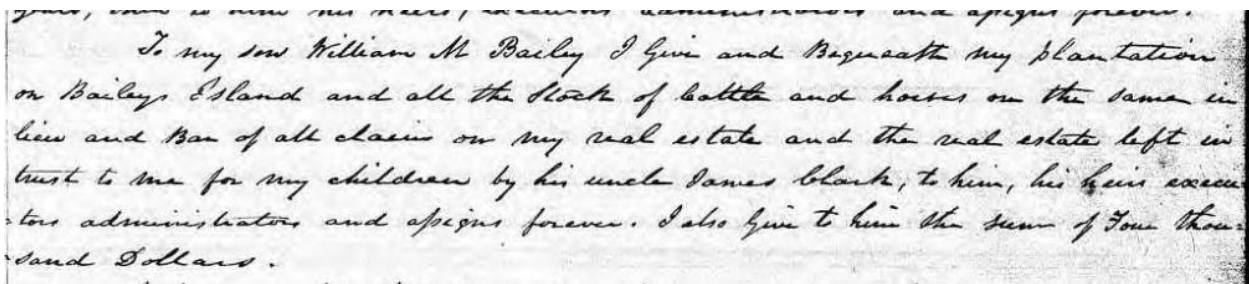 years, then to him his heirs, executors administrators and assigns forever.
To my son William M Bailey I Give and Bequeath my plantation
on Baileys Island and all the Stock of Cattle and horses on the same in
lieu and Bar of all claim on my real estate and the real estate left in
trust to me for my children by his uncle James Clark, to him, his heirs execu
-tors administrators and assigns forever. I also Give to him the sum of Four thou-
-sand Dollars.